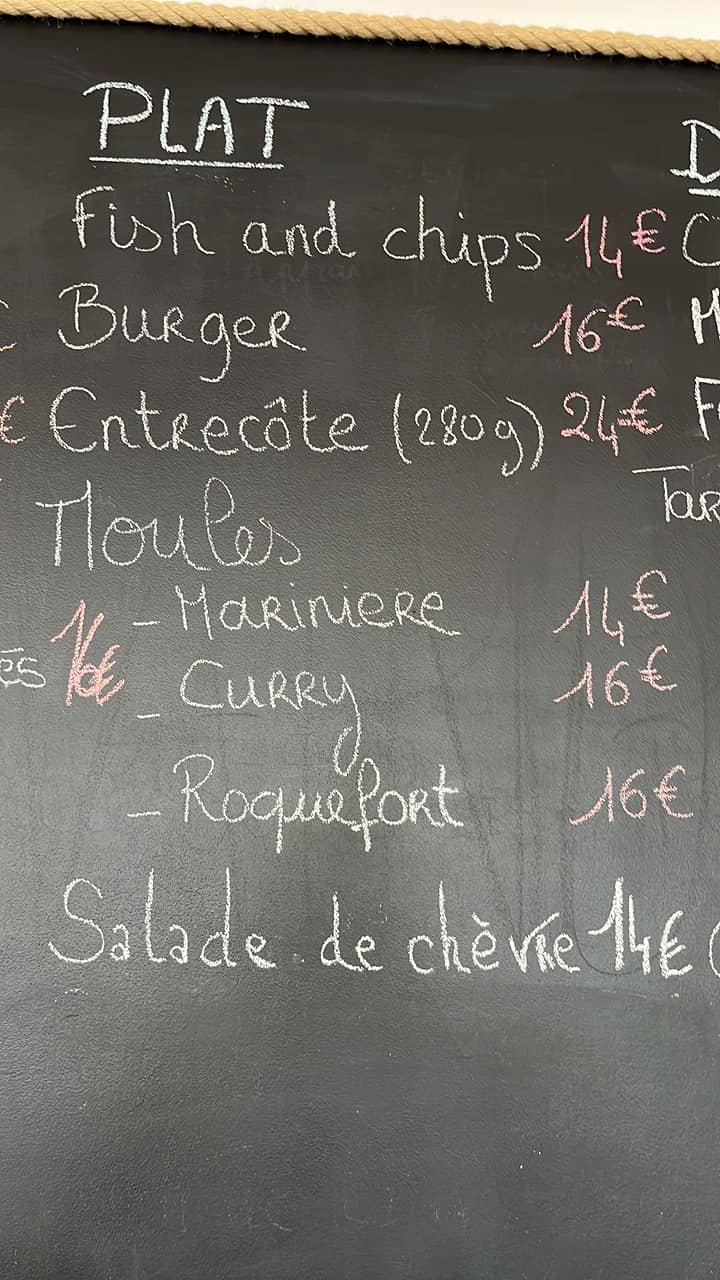 PLAT
Fish and chips 14€
Burger 16€
Entrecôte (280g) 24€
Moules
- Mariniere 14€
16€
- Curry 16€
- Roquefort 16€
Salade de chèvre 14€